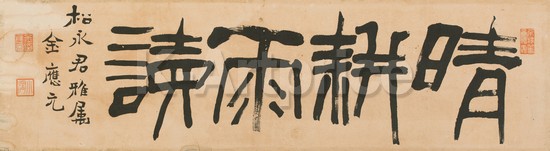 晴耕雨讀
松永君雅属
金應元